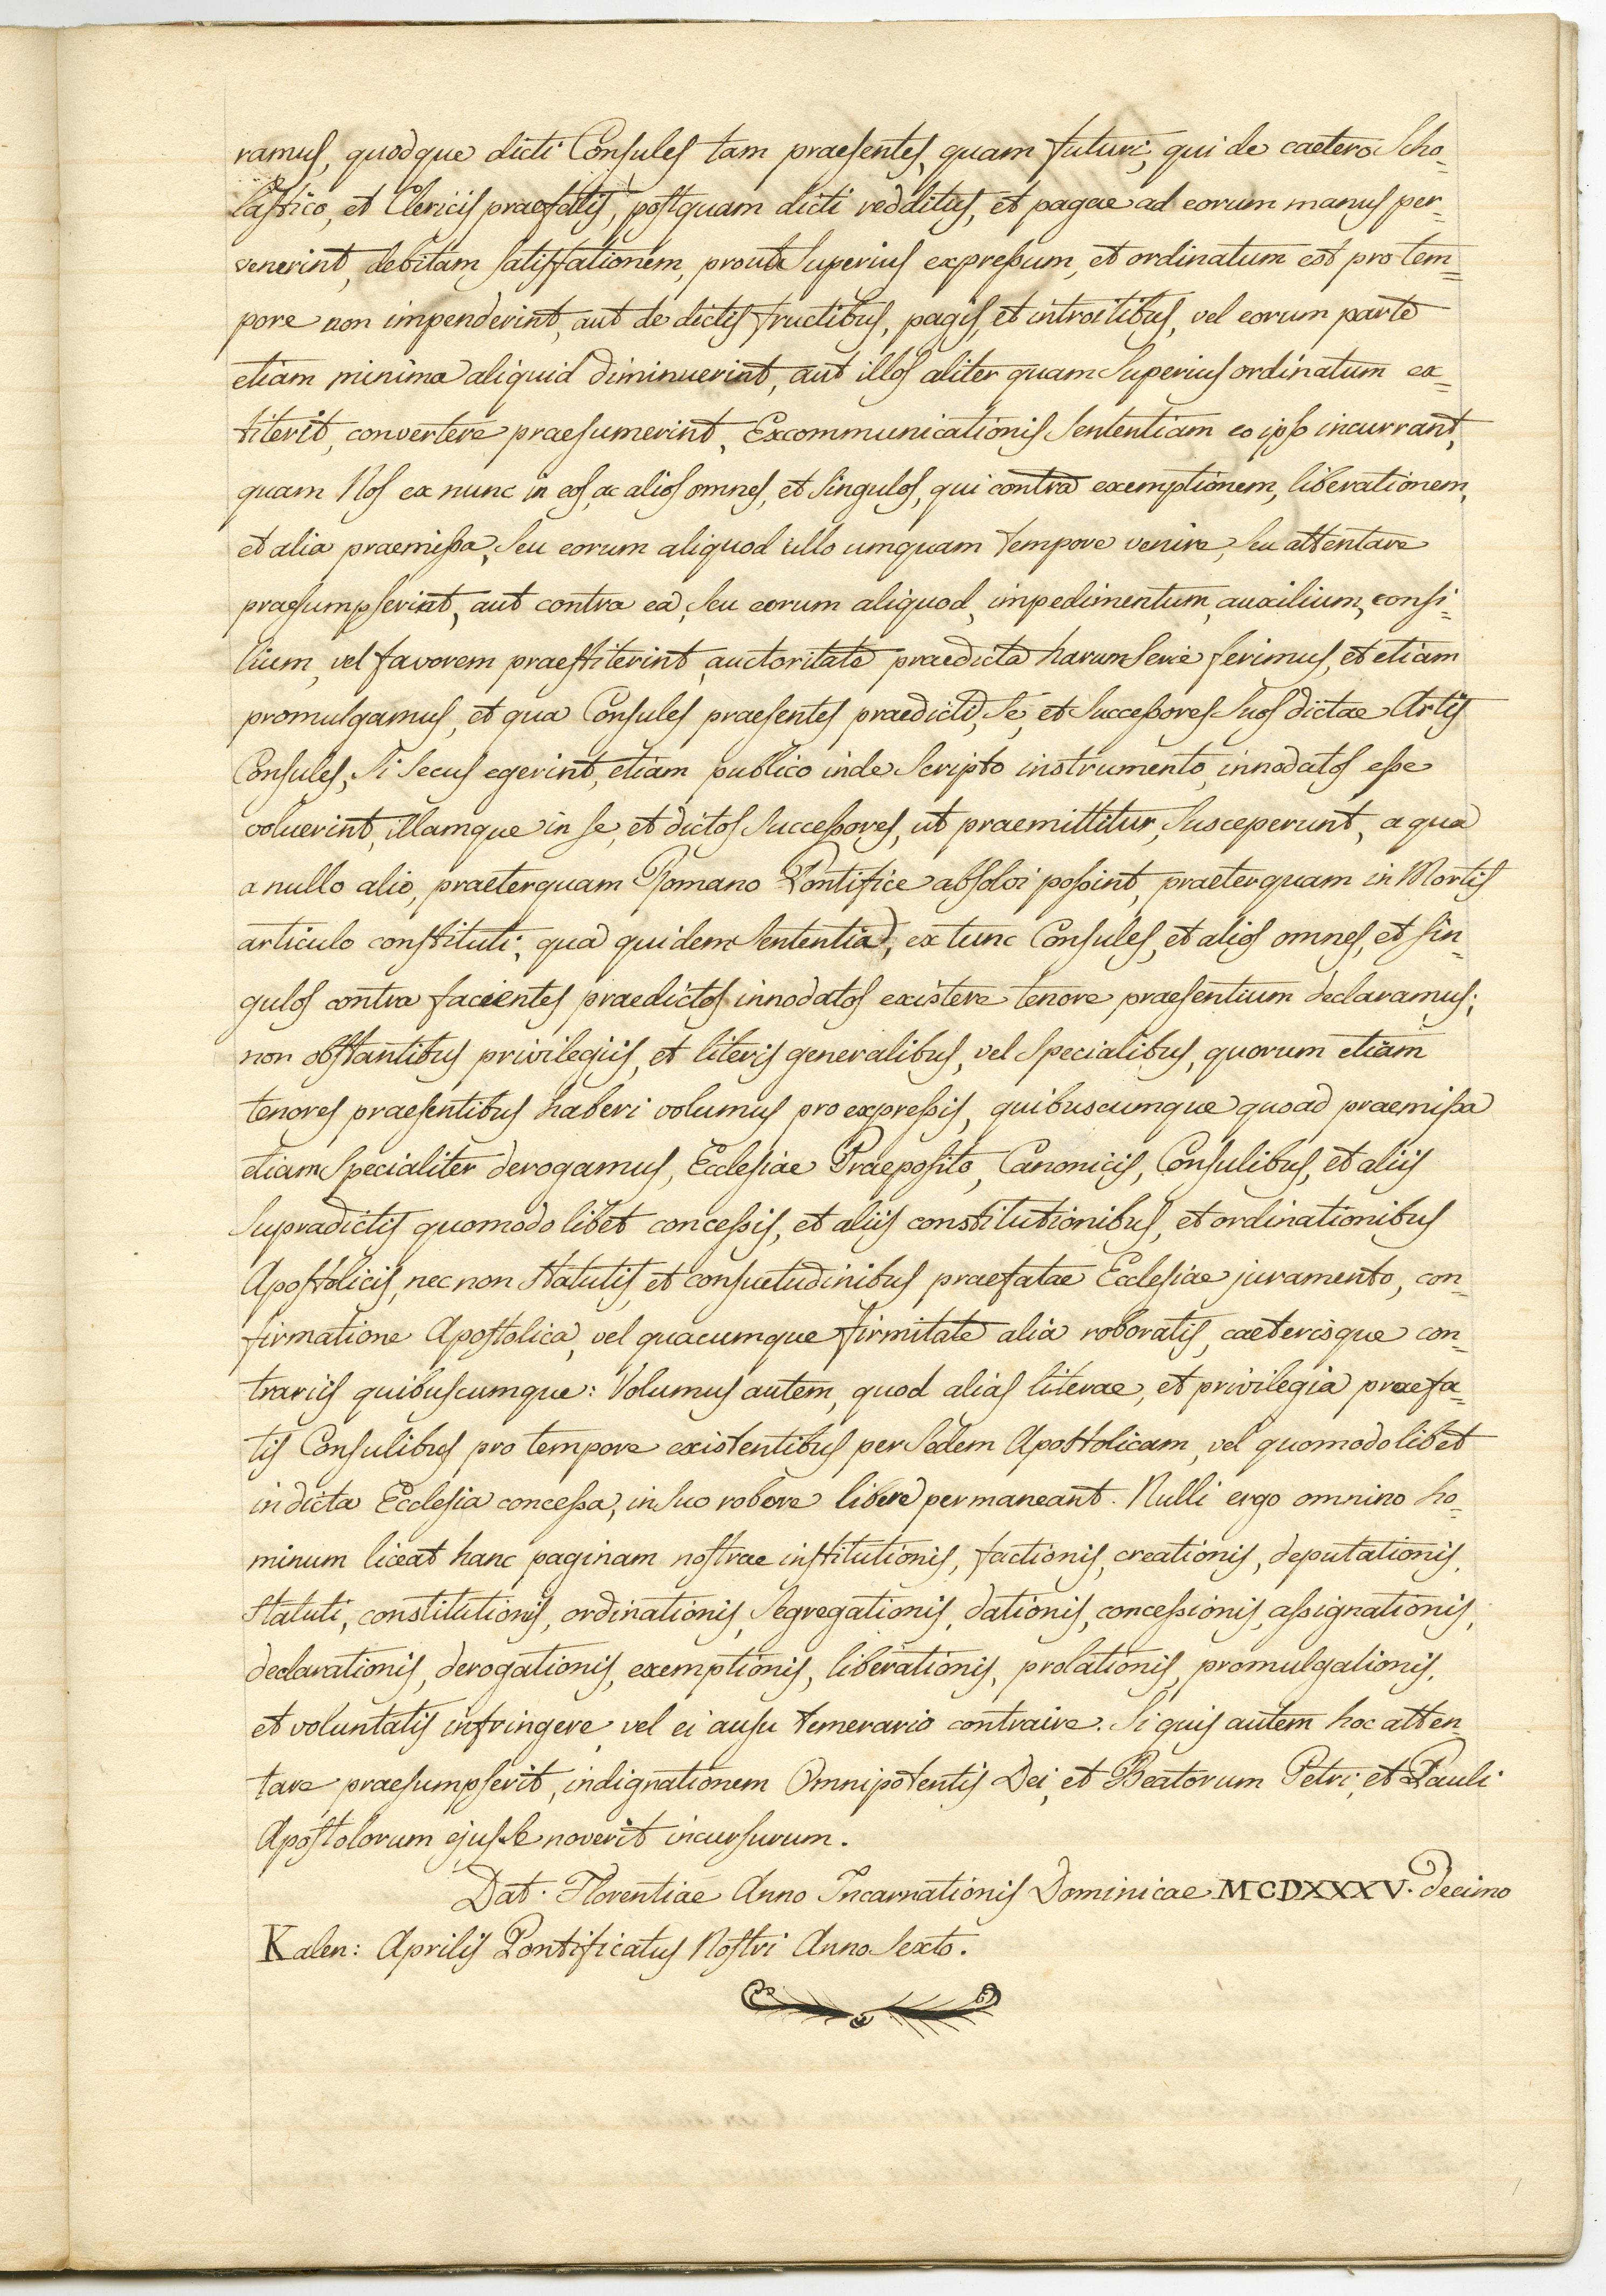 ramus, quodque dicti Consules tam praesentes, quam futuri, qui de caetero Scho=
lastico, et Clericis praefatis, postquam dicti redditus, et pagae ad eorum manus per=
venerint, debitam satisfationem, prout Superius expressum, et ordinatum est pro tem=
pore non impenderint, aut de dictis fructibus, pagis, et introitibus, vel eorum parte
etiam minima aliquid diminuerint, aut illos aliter quam Superius ordinatum ex=
titerit, convertere praesumerint, Excommunicationis Sententiam eo ipso incurrant,
quam Nos ex nunc in eos, ac alios omnes, et Singulos, qui contra exemptionem, liberationem,
et alia praemissa, Seu eorum aliquod ullo umquam tempore venire, Seu attentare
praesumpserint, aut contra ea, Seu eorum aliquod, impedimentum, auxilium, consi=
lium, vel favorem praestiterint, auctoritate praedicta harum Serie ferimus, et etiam
promulgamus, et qua Consules praesentes praedicti, Se, et Successores Suos dictae Artis
Consules, Si Secus egerint, etiam publico inde Scripto instrumento, innodatos esse
voluerint, illamque in se, et dictos Successores, ut praemittitur, Susceperunt, a qua
a nullo alio, praeterquam Romano Pontifice absolvi possint, praeterquam in Mortis
articulo constituti; qua quidem Sententia, ex tunc Consules, et alios omnes, et sin=
gulos contra facientes praedictos innodatos existere tenore praesentium declaramus;
non obstantibus privilegiis, et literis generalibus, vel Specialibus, quorum etiam
tenores praesentibus haberi volumus pro expressis, quibuscumque quoad praemissa
etiam Specialiter derogamus, Ecclesiae Praeposito, Canonicis, Consulibus, et aliis
Supradictis quomodo libet concessis, et aliis constitutionibus, et ordinationibus
Apostolicis, nec non Statutis, et consuetudinibus praefatae Ecclesiae juramento, con=
firmatione Apostolica, vel quacumque firmitate alia roboratis, caeterisque con=
trariis quibuscumque: Volumus autem, quod alias literae, et privilegia praefa=
tis Consulibus pro tempore existentibus per Sedem Apostolicam, vel quomodo libet
in dicta Ecclesia concessa, in Suo robore libere permaneant. Nulli ergo omnino ho=
minum liceat hanc paginam nostrae institutionis, factionis, creationis, deputationis,
Statuti, constitutionis, ordinationis, Segregationis, dationis, concessionis, assignationis,
declarationis, derogationis, exemptionis, liberationis, prolationis, promulgationis,
et voluntatis infringere, vel ei ausu temerario contraire. Si quis autem hoc atten=
tare praesumpserit, indignationem Omnipotentis Dei, et Beatorum Petri, et Pauli
Apostolorum ejus Se noverit incursurum.
Dat. Florentiae Anno Incarnationis Dominicae MCDXXXV. Decimo
Kalen: Aprilis Pontificatus Nostri Anno Sexto.